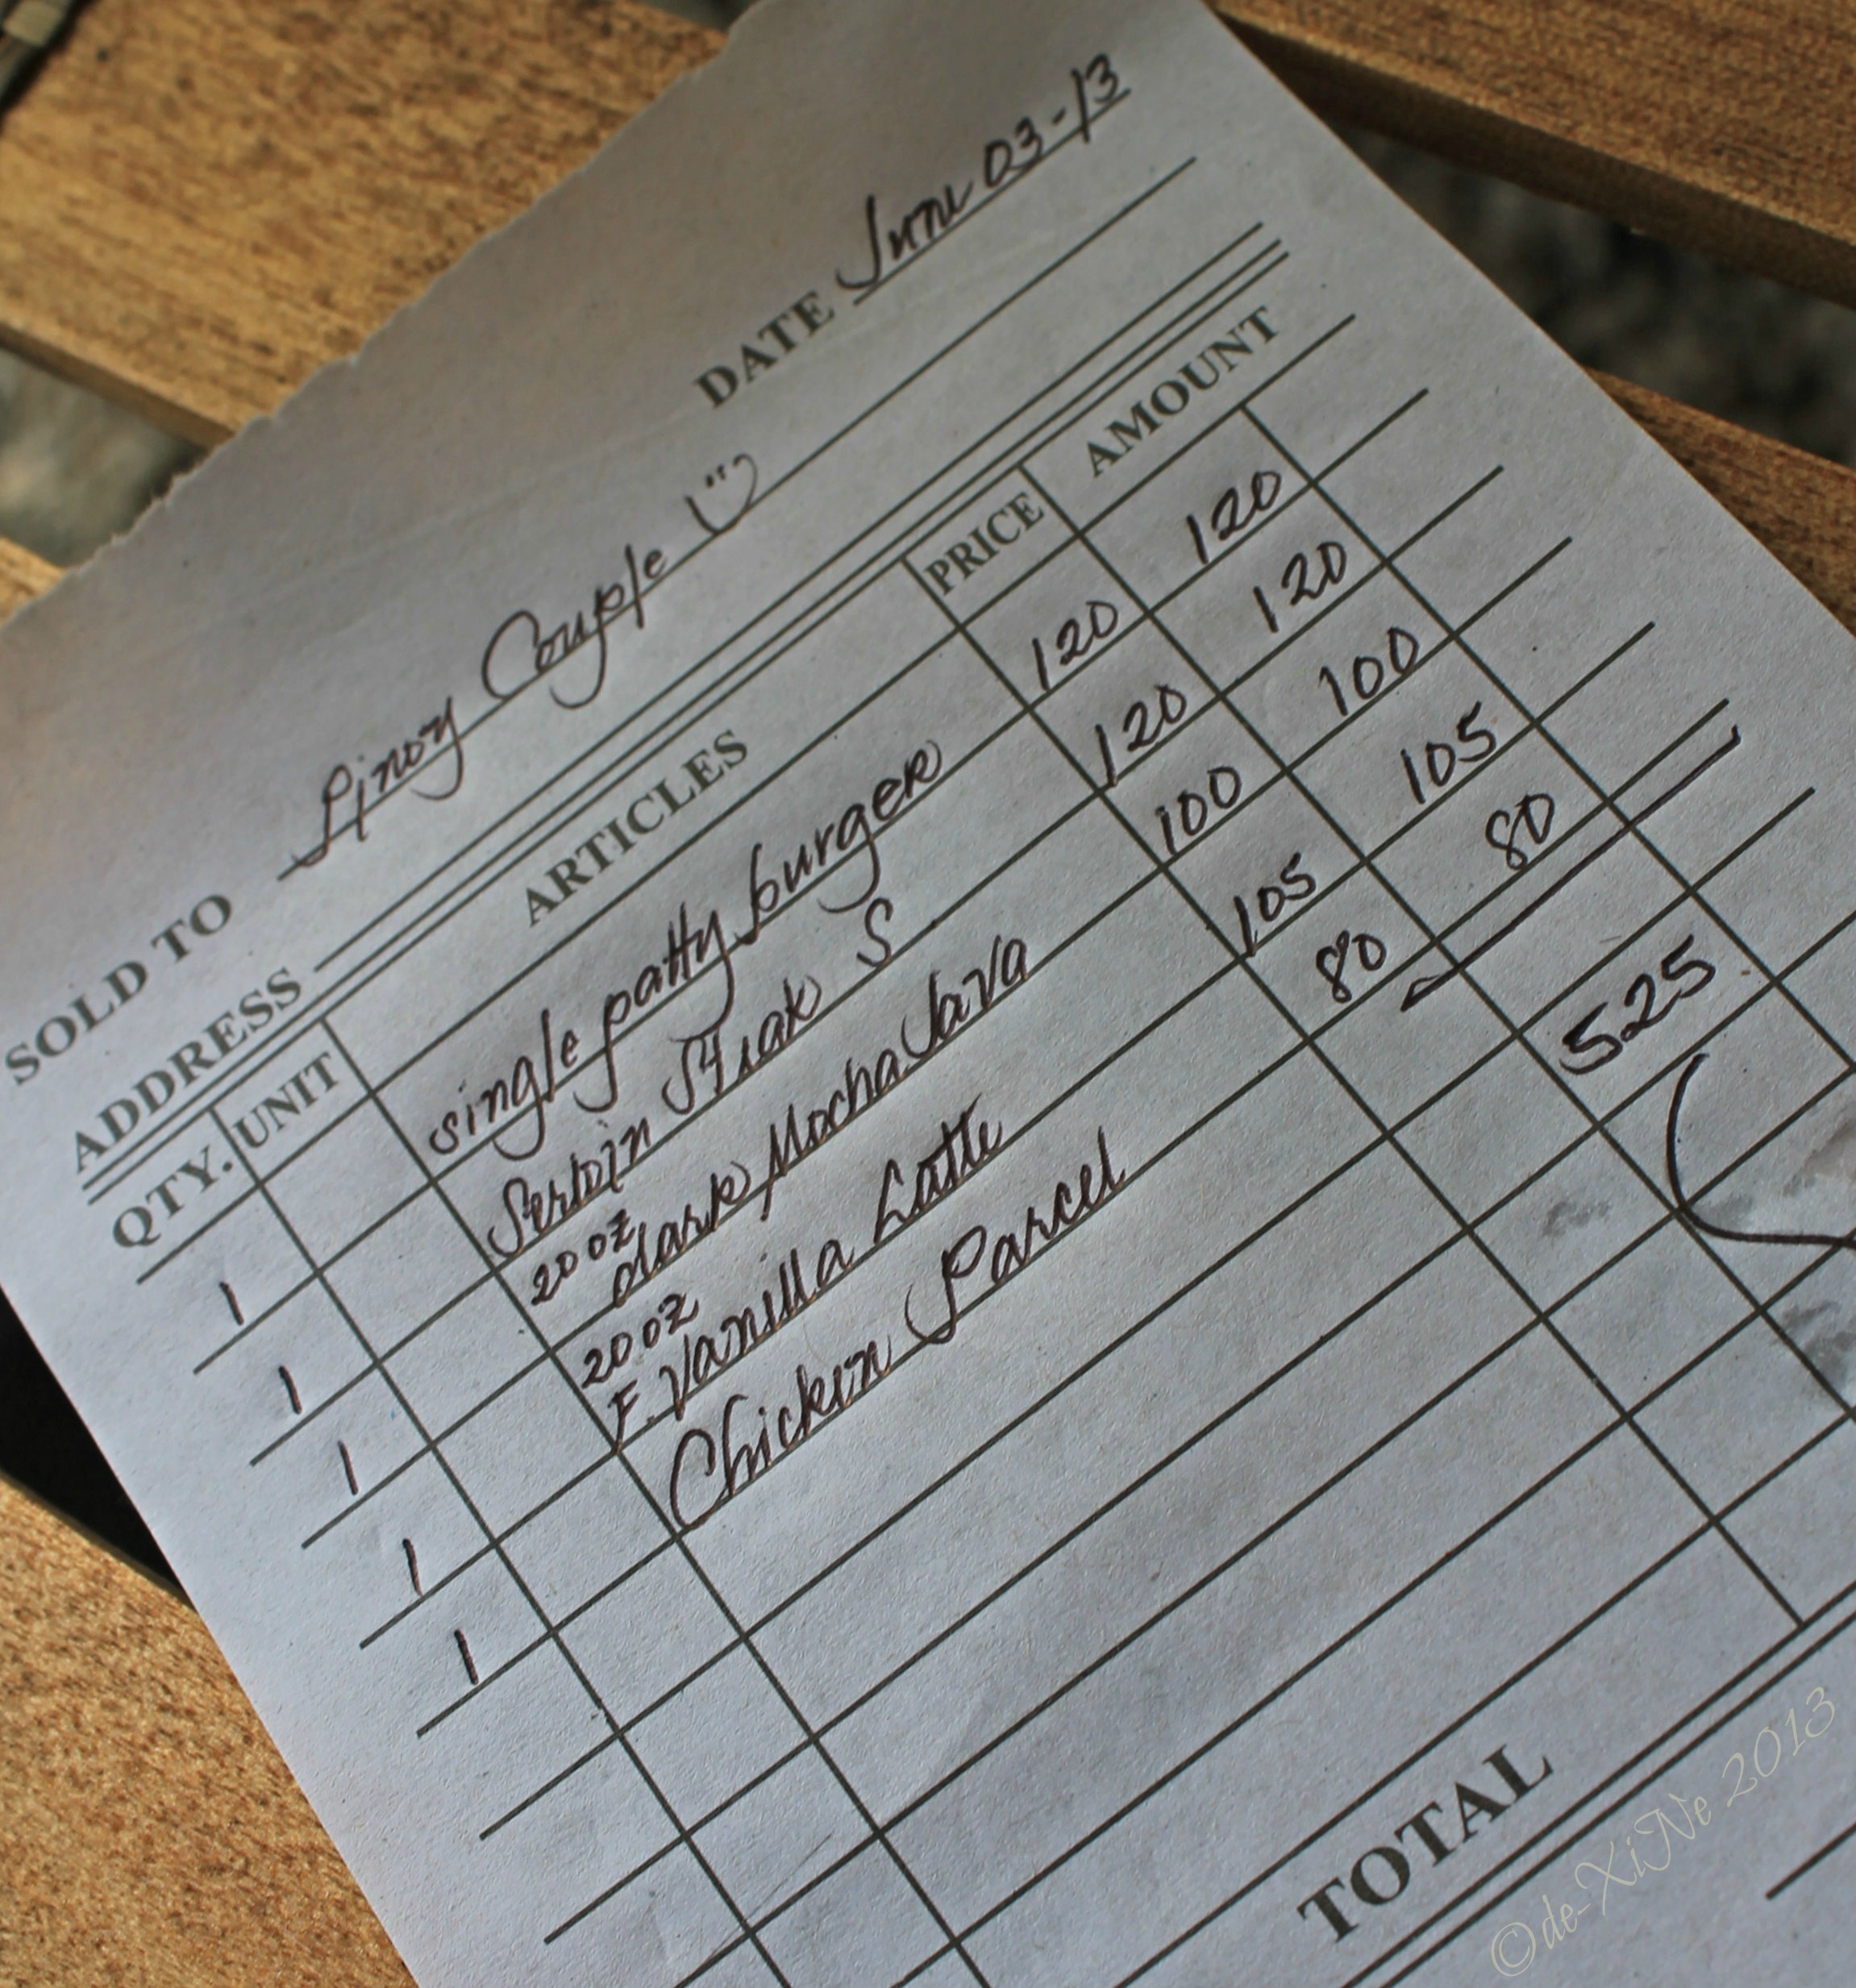 DATE June 03-13
SOLD TO Pinoy Couple
ADDRESS
QTY. UNIT ARTICLES PRICE AMOUNT
1 single patty burger 120 120
1 Serloin Steak S 120 120
1 20 oz dark Mocha Java 100 100
1 20 oz F. Vanilla Latte 105 105
1 Chicken Parcel 80 80
525
TOTAL
©de-XiNe 2013